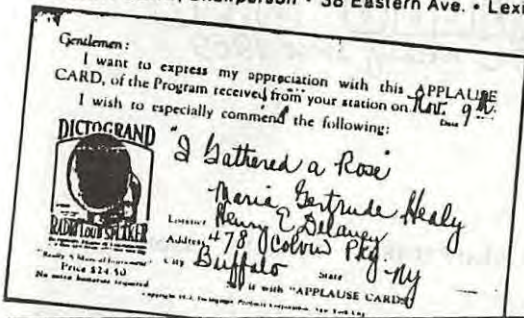 Chairperson • 38 Eastern Ave. • Lexi
Gentlemen:
I want to express my appreciation with this APPLAUSE
CARD, of the Program received from your station on Nov. 9th
Date
I wish to especially commend the following:
DICTOGRAND
RADIO LOUD SPEAKER
Price $24.50
No extra batteries required
"I Gathered a Rose"
Maria Gertrude Healy
Listener Henry E Delaney
Address 478 Colvin Pkg
City Buffalo State NY
it with "APPLAUSE CARDS"